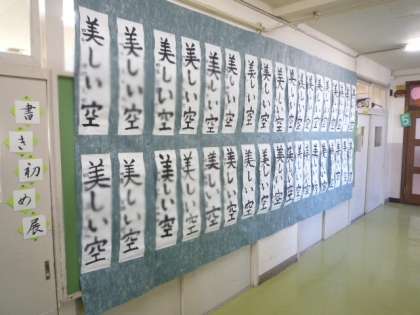 書き初め展
美しい空
美しい空
美しい空
美しい空
美しい空
美しい空
美しい空
美しい空
美しい空
美しい空
美しい空
美しい空
美しい空
美しい空
美しい空
美しい空
美しい空
美しい空
美しい空
美しい空
美しい空
美しい空
美しい空
美しい空
美しい空
美しい空
美しい空
美しい空
美しい空
美しい空
美しい空
美しい空
5